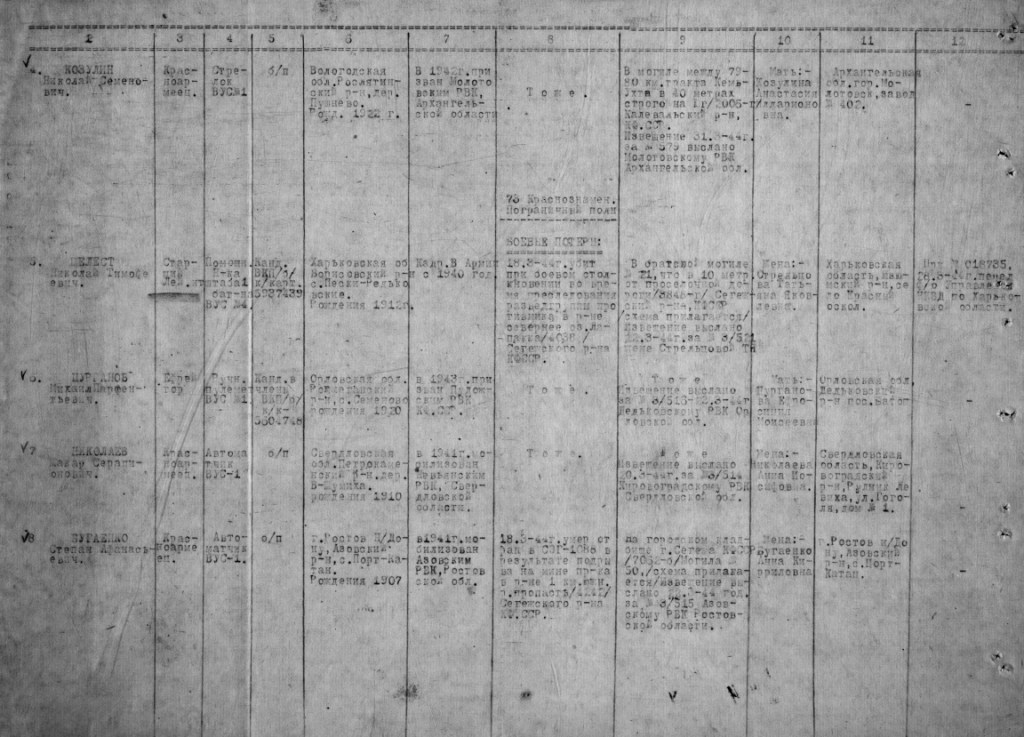 2 3 4 5 6 7 8 9 10 11 12
4. КОЗУЛИН
Николай Семено-
вич.
Крас-
ноар-
меец.
Стре-
лок
ВУС№1
б/п
Вологодская
р-н, дер.
Рожд. 1922 г.
В 1942г. при
зван Молото
вским РВК,
Архангель-
ской области
Т о ж е .
В могиле между 79-
80 км. тракта Кемь-
Ухта в 40 метрах
строго на
Калевальский р-н,
КФ.ССР.
Извещение 31.3-44г.
за № 579 выслано
Молотовскому РВК
Архангельской обл.
Мать:-
Козулина
Анастасия
Илларионо-
вна.
Архангельская
обл. гор. Мо-
лотовск, завод
№ 402.
-
73 Краснознамен.
Пограничный полк
БОЕВЫЕ ПОТЕРИ:
5. ПЕЛЕСТ
Николай Тимофе
евич.
Стар-
ший
Лей-нт
Помощн.
Н-ка
штаба 1
бат-на
ВУС №1.
Канд.
ВКП/б/
к/карт.
5937439
Харьковская об
Борисовский р-н
с. Пески-Редько
вские.
Рождения 1912г.
Кадр. В Армии
с 1940 год.
18.3-44г. убит
при боевом стол-
кновении во вре-
мя преследования
разведгруппы про
тивника в р-не
севернее оз.
Сегежского р-на
КФССР.
В братской могиле
№ 21, что в 10 метр.
от проселочной до-
роги /3848-г/ Сегеж
ский р-н, КФССР
/схема прилагается/
Извещение выслано
22.3-44г. за № 3/521
жене Стрельцовой ТЯ
Жена:-
Стрельцо
ва Тать-
яна Яков-
левна.
Харьковская
область,
р-н, се-
ло Красный
оскол.
№ 018735.
Управление
НКВД по Харько-
вской области.
6. ЦУРГАНОВ
Михаил
тьевич.
Ефрей
тор
Ручн.
пулеметч
ВУС №1
Канд. в
ВКП/б/
к/к-
5804748
Орловская обл.
р-н, с. Семеново
рождения 1920
в 1943г. при
зван
ским РВК,
КФ.ССР.
Т о ж е .
Т о ж е
Извещение выслано
за № 3/513-22.3-44г
Дедьковскому РВК Ор
ловской обл.
Мать:-
Цургано-
ва
Моисеевн
Орловская обл.
Дедьковский
р-н пос.
-
7 НИКОЛАЕВ
Макар Серапи-
онович.
Крас-
ноар-
меец.
Автома
тчик
ВУС-1
б/п
Свердловская
обл. Петрокаме-
нский р-н, дер.
рождения 1910
в 1941г. мо-
билизован
Невьянским
РВК, Свер-
дловской
области.
Т о ж е .
Т о ж е
Извещение выслано
20.3-44г. за №3/514
Кировоградскому РВК
Свердловской обл.
Жена:-
Николаева
Анна Ио-
сифовна.
Свердловская
область, Киро-
воградский
р-н, Рудник Ле-
виха, ул. Гого-
ля, дом № 1.
-
8 БУГАЕНКО
Степан Афанась-
евич.
Крас-
ноарме
ец.
Авто-
матчик
ВУС-1.
б/п
г. Ростов Н/До-
ну, Азовский
р-н, с. Порт-Ка-
тан.
Рождения 1907
в 1941г. мо-
билизован
Азовским
РВК, Ростов
ской обл.
18.3-44г. умер от
ран в СЭГ-1088 в
результате подры
ва на мине пр-ка
в р-не 1 км. юж.
Сегежского р-на
КФ.ССР.
на городском клад-
бище г. Сегежа КФССР
Могила №
50, /схема прилага-
ется/ извещение вы-
слано 22.3-44 год.
за № 3/515 Азов-
скому РВК Ростов-
ской области.
Жена:-
Бугаенко
Анна Ки-
рилловна
г. Ростов н/До
ну, Азовский
р-н, с. Порт-
Катан.
-